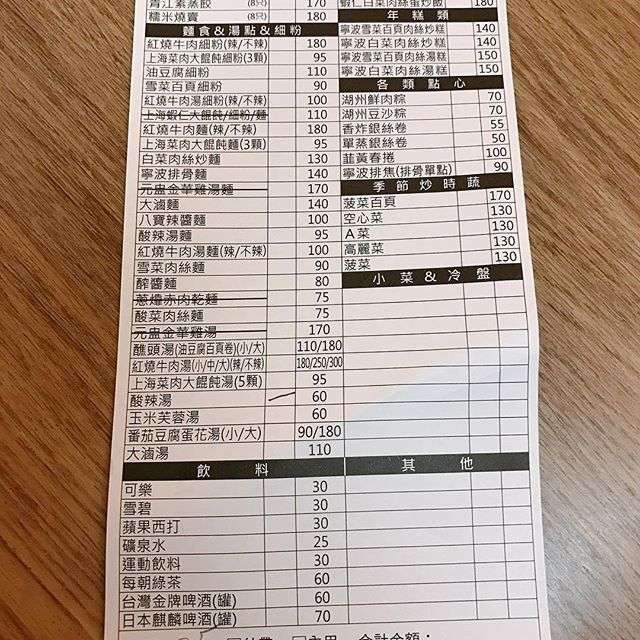 青江素蒸餃 (8只) 170
糯米燒賣 (8只) 180
麵食&湯點&細粉
紅燒牛肉細粉(辣/不辣) 180
上海菜肉大餛飩細粉(3顆) 95
油豆腐細粉 110
雪菜百頁細粉 90
紅燒牛肉湯細粉(辣/不辣) 100
上海蝦仁大餛飩/細粉/麵 110
紅燒牛肉麵(辣/不辣) 180
上海菜肉大餛飩麵(3顆) 95
白菜肉絲炒麵 130
寧波排骨麵 140
元盅金華雞湯麵 170
大滷麵 140
八寶辣醬麵 100
酸辣湯麵 95
紅燒牛肉湯麵(辣/不辣) 100
雪菜肉絲麵 90
醡醬麵 80
蔥㸆赤肉乾麵 75
酸菜肉絲麵 75
元盅金華雞湯 170
醮頭湯(油豆腐百頁卷)(小/大) 110/180
紅燒牛肉湯(小/中/大)(辣/不辣) 180/250/300
上海菜肉大餛飩湯(5顆) 95
酸辣湯 60
玉米芙蓉湯 60
番茄豆腐蛋花湯(小/大) 90/180
大滷湯 110
飲料
可樂 30
雪碧 30
蘋果西打 30
礦泉水 25
運動飲料 30
每朝綠茶 60
台灣金牌啤酒(罐) 60
日本麒麟啤酒(罐) 70
蝦仁白菜肉絲蛋炒飯 180
年糕類
寧波雪菜百頁肉絲炒糕 140
寧波白菜肉絲炒糕 140
寧波雪菜百頁肉絲湯糕 150
寧波白菜肉絲湯糕 150
各類點心
湖州鮮肉粽 70
湖州豆沙粽 70
香炸銀絲卷 55
單蒸銀絲卷 50
韮黃春捲 100
寧波排焦(排骨單點) 90
季節炒時蔬
菠菜百頁 170
空心菜 130
A菜 130
高麗菜 130
菠菜 130
小菜&冷盤
其他
合計金額：